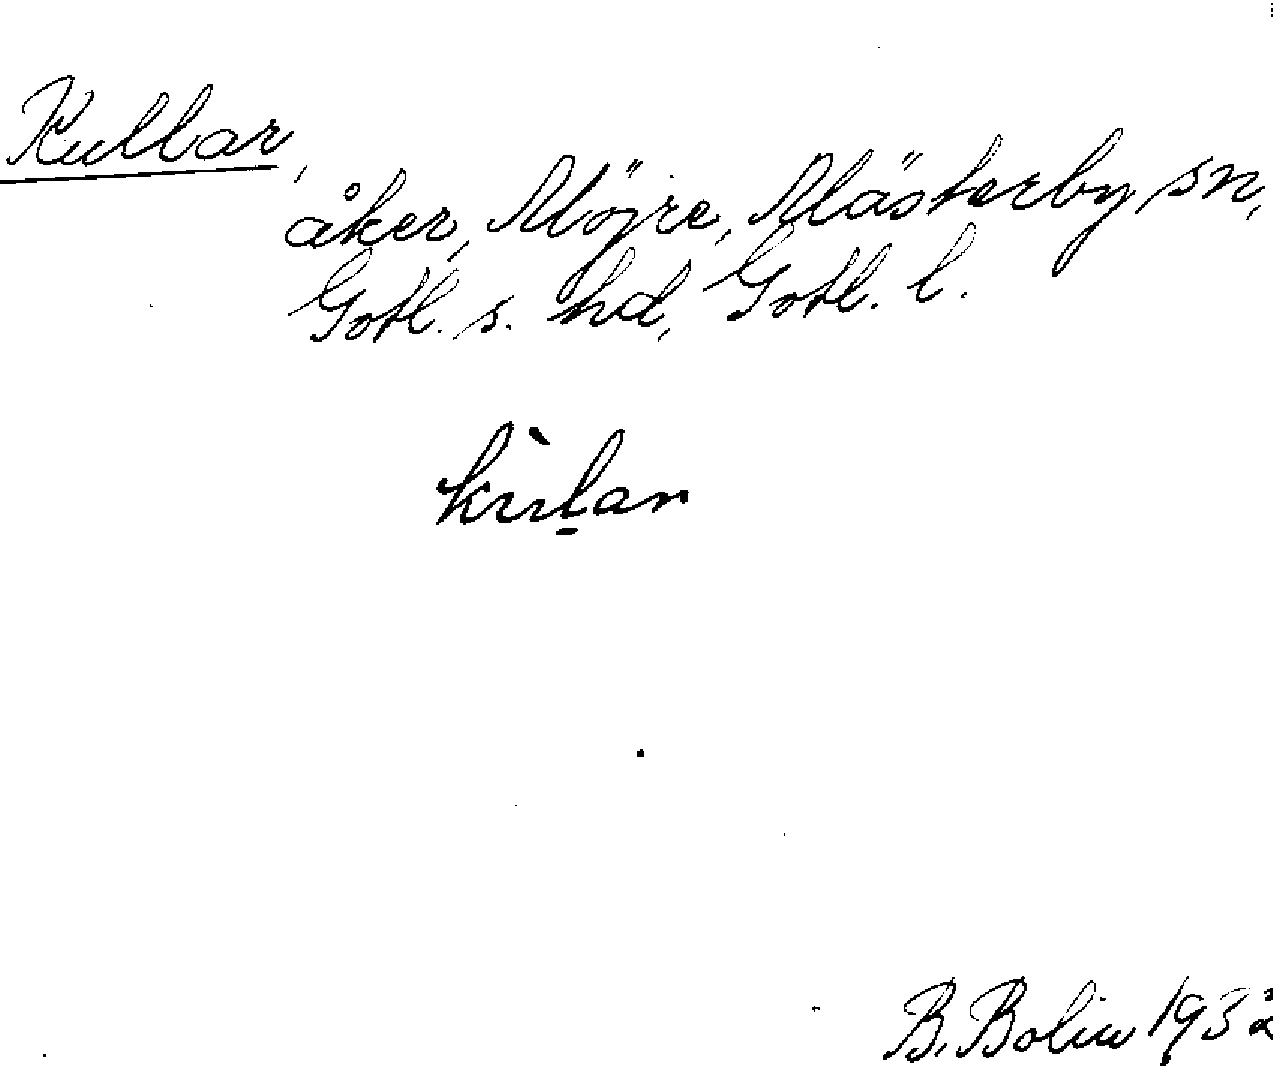 Kullar,
åker, Möjre, Mästerby sn,
Gotl. s. hd, Gotl. l.
kùl̠ar
B. Bolin 1932